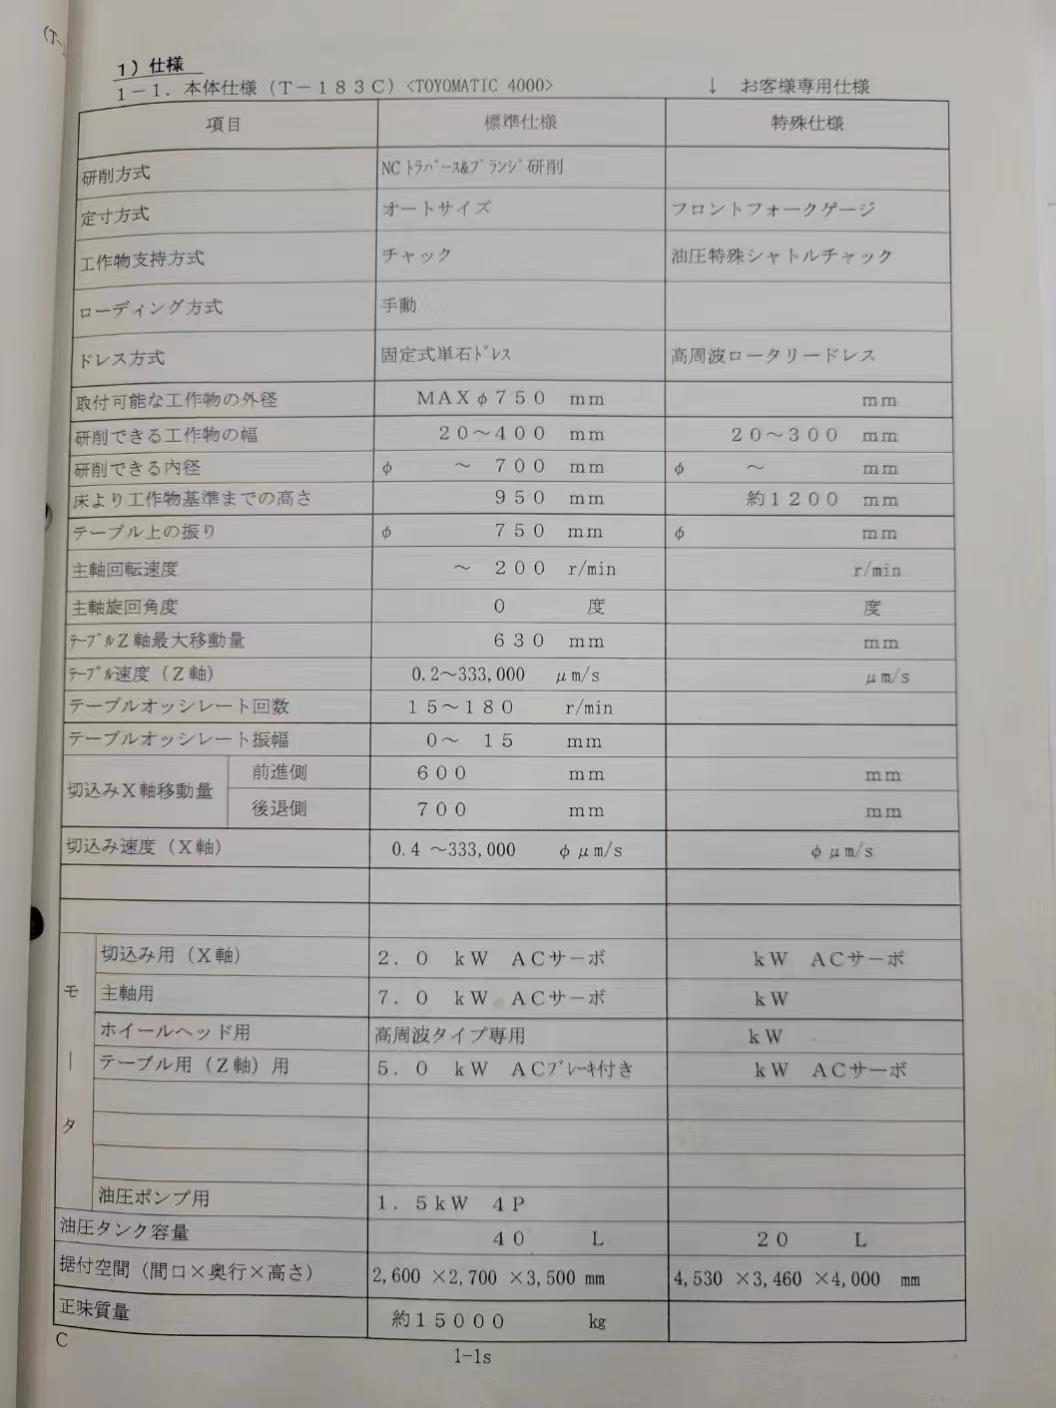 (T-1
1) 仕様
1-1. 本体仕様 (T-183C) <TOYOMATIC 4000> ↓ お客様専用仕様
項目 標準仕様 特殊仕様
研削方式 NCトラバース&プランジ研削
定寸方式 オートサイズ フロントフォークゲージ
工作物支持方式 チャック 油圧特殊シャトルチャック
ローディング方式 手動
ドレス方式 固定式単石ドレス 高周波ロータリードレス
取付可能な工作物の外径 MAXφ750 mm mm
研削できる工作物の幅 20~400 mm 20~300 mm
研削できる内径 φ ~ 700 mm φ ~ mm
床より工作物基準までの高さ 950 mm 約1200 mm
テーブル上の振り φ 750 mm φ mm
主軸回転速度 ~ 200 r/min r/min
主軸旋回角度 0 度 度
テーブルZ軸最大移動量 630 mm mm
テーブル速度 (Z軸) 0.2~333,000 μm/s μm/s
テーブルオッシレート回数 15~180 r/min
テーブルオッシレート振幅 0~ 15 mm
切込みX軸移動量 前進側 600 mm mm
後退側 700 mm mm
切込み速度 (X軸) 0.4 ~333,000 φμm/s φμm/s
モータ 切込み用 (X軸) 2.0 kW ACサーボ kW ACサーボ
主軸用 7.0 kW ACサーボ kW
ホイールヘッド用 高周波タイプ専用 kW
テーブル用 (Z軸) 用 5.0 kW ACブレーキ付き kW ACサーボ
油圧ポンプ用 1.5kW 4P
油圧タンク容量 40 L 20 L
据付空間 (間口×奥行×高さ) 2,600 ×2,700 ×3,500 mm 4,530 ×3,460 ×4,000 mm
正味質量 約15000 kg
C
1-1s